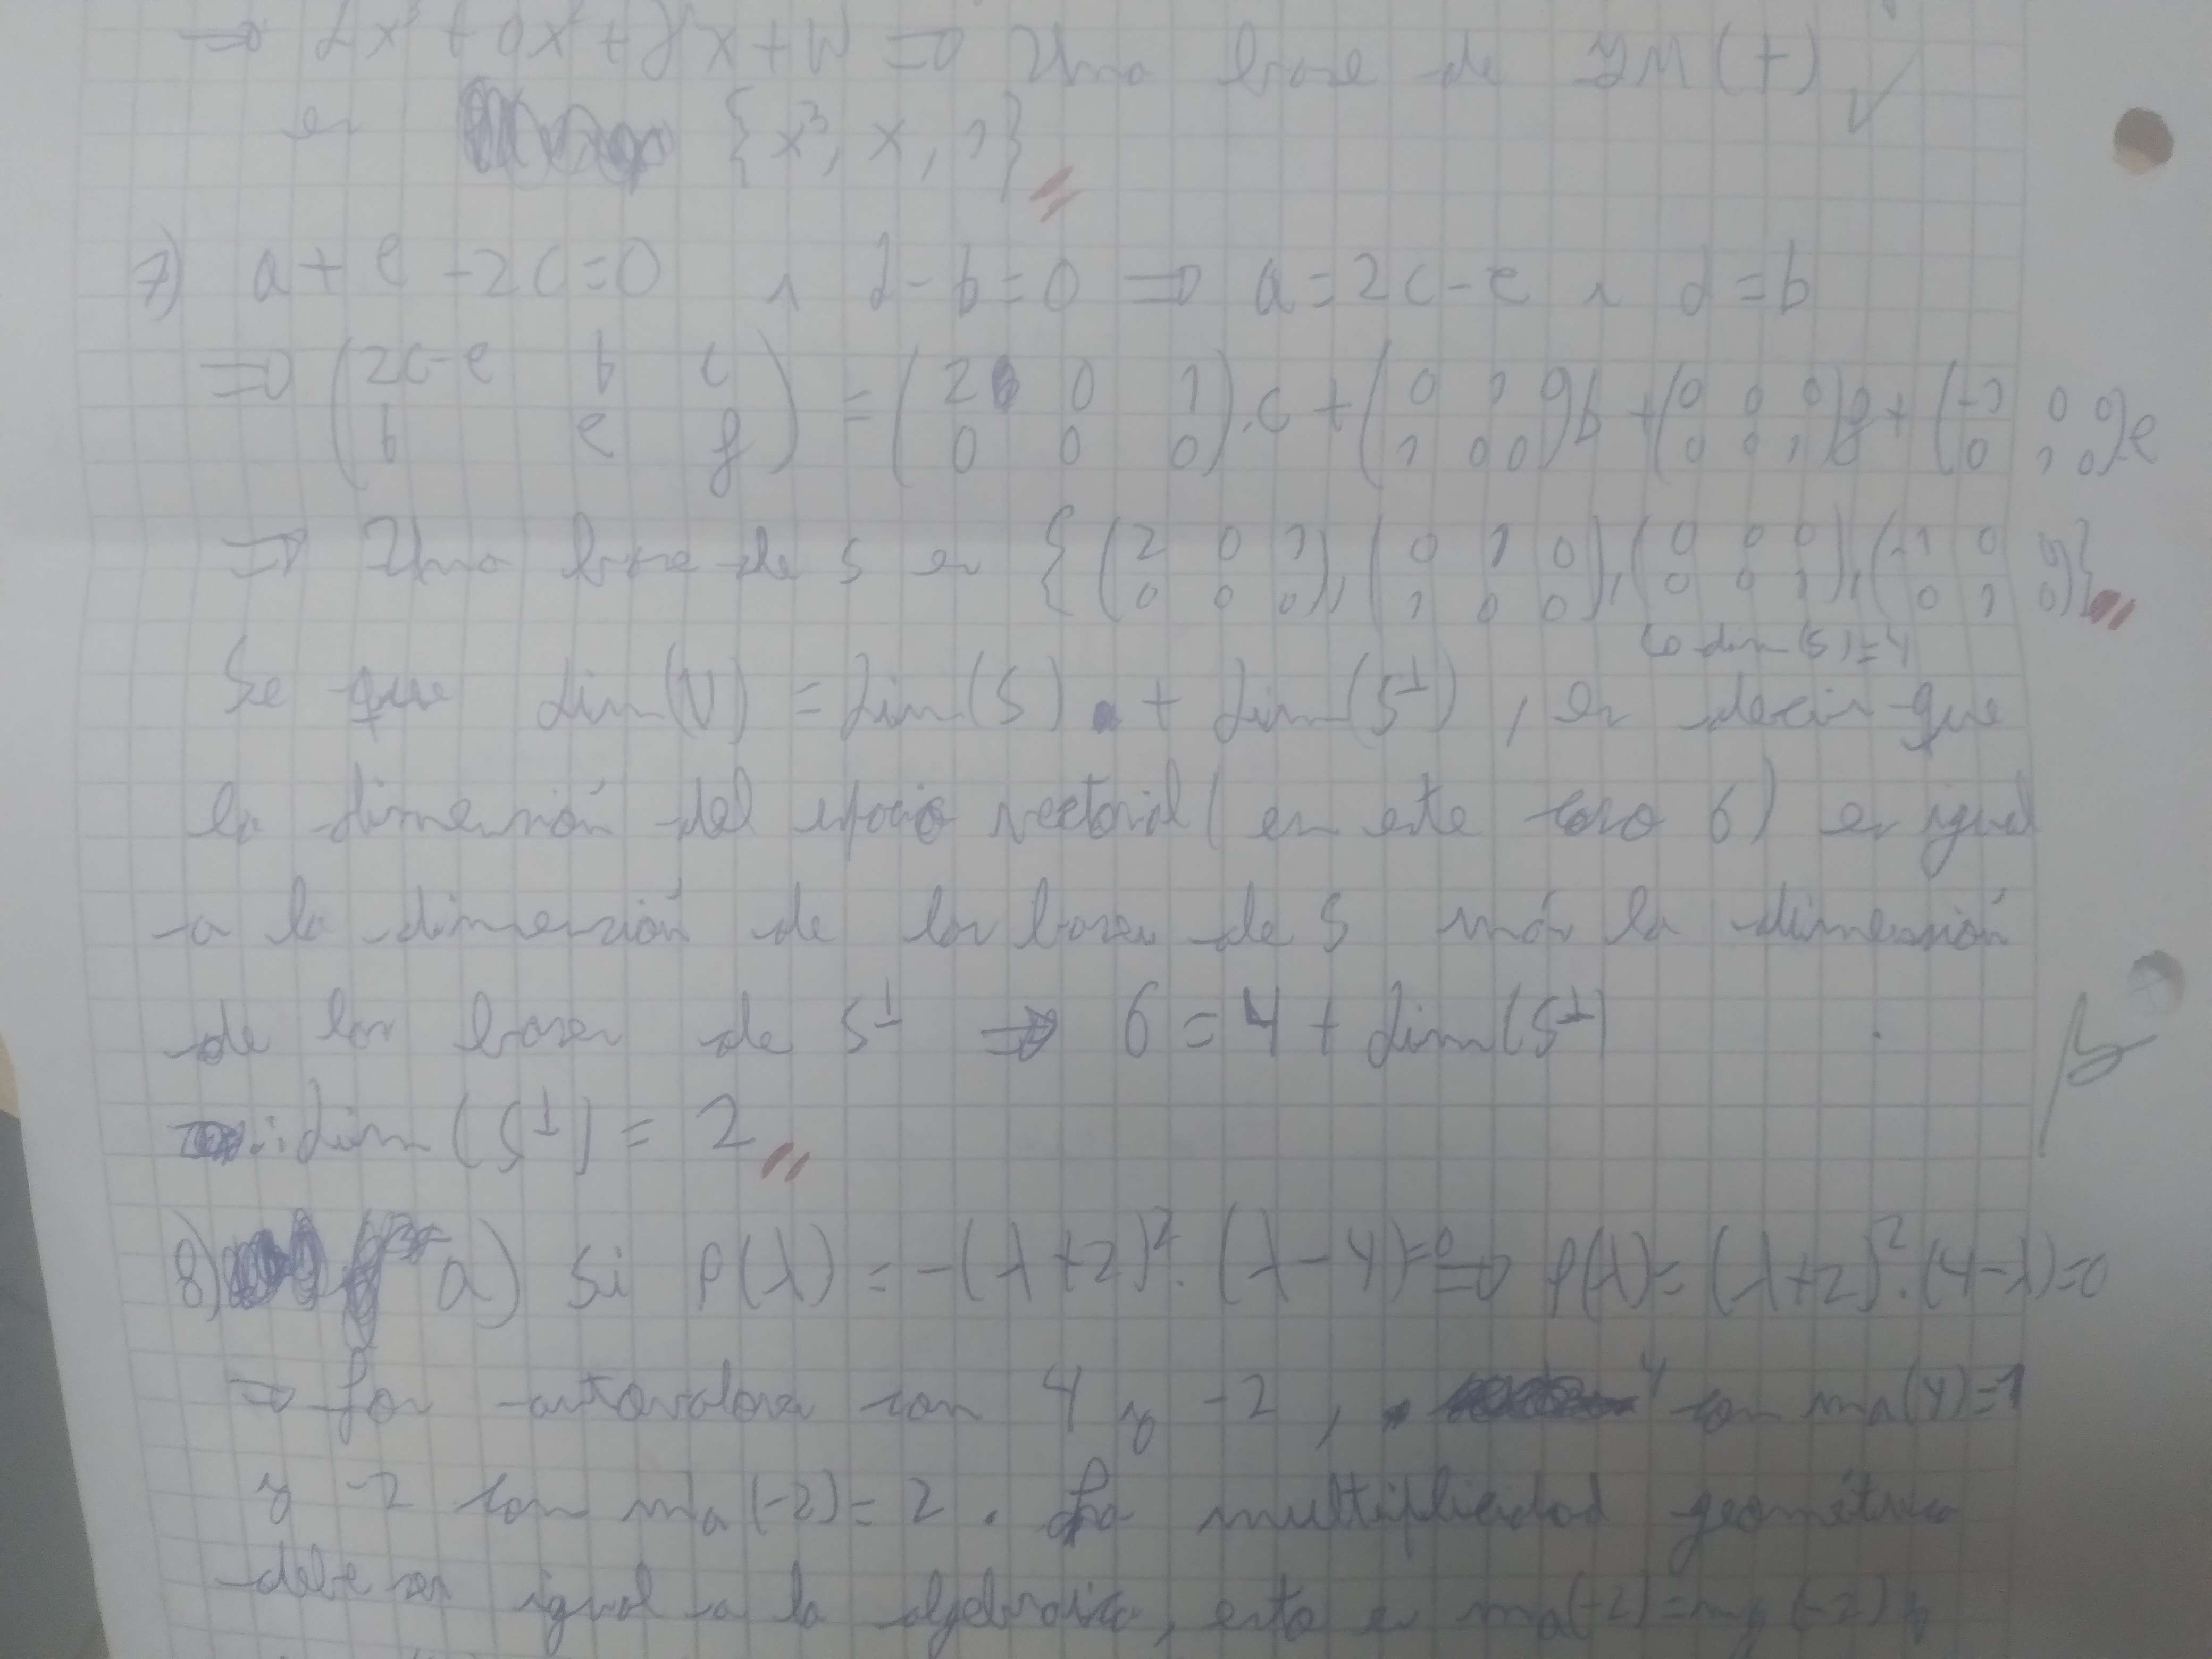 ⇒ 2x³ + dx² + gx + w ⇒ Una base de IM(t) ✓
es {x³, x, 1}
7) a + e - 2c = 0 ∧ d - b = 0 ⇒ a = 2c - e ∧ d = b
⇒ (2c-e b c; b e f) = (2 0 1; 0 0 0).c + (0 1 0; 1 0 0)b + (0 0 0; 0 0 1)f + (-1 0 0; 0 1 0).e
⇒ Una base de S es {(2 0 1; 0 0 0), (0 1 0; 1 0 0), (0 0 0; 0 0 1), (-1 0 0; 0 1 0)}
dim(S)=4
Se que dim(V) = dim(S) + dim(S⊥), es decir que
la dimensión del espacio vectorial (en este caso 6) es igual
a la dimensión de las bases de S más la dimensión
de las bases de S⊥ ⇒ 6 = 4 + dim(S⊥)
∴ dim(S⊥) = 2
8) a) Si P(λ) = -(λ+2)².(λ-4)=0 ⇒ P(λ) = (λ+2)².(4-λ)=0
⇒ Los autovalores son 4 y -2, 4 con ma(4)=1
y -2 con ma(-2) = 2. La multiplicidad geométrica
debe ser igual a la algebraica, esto es ma(-2)=mg(-2) y